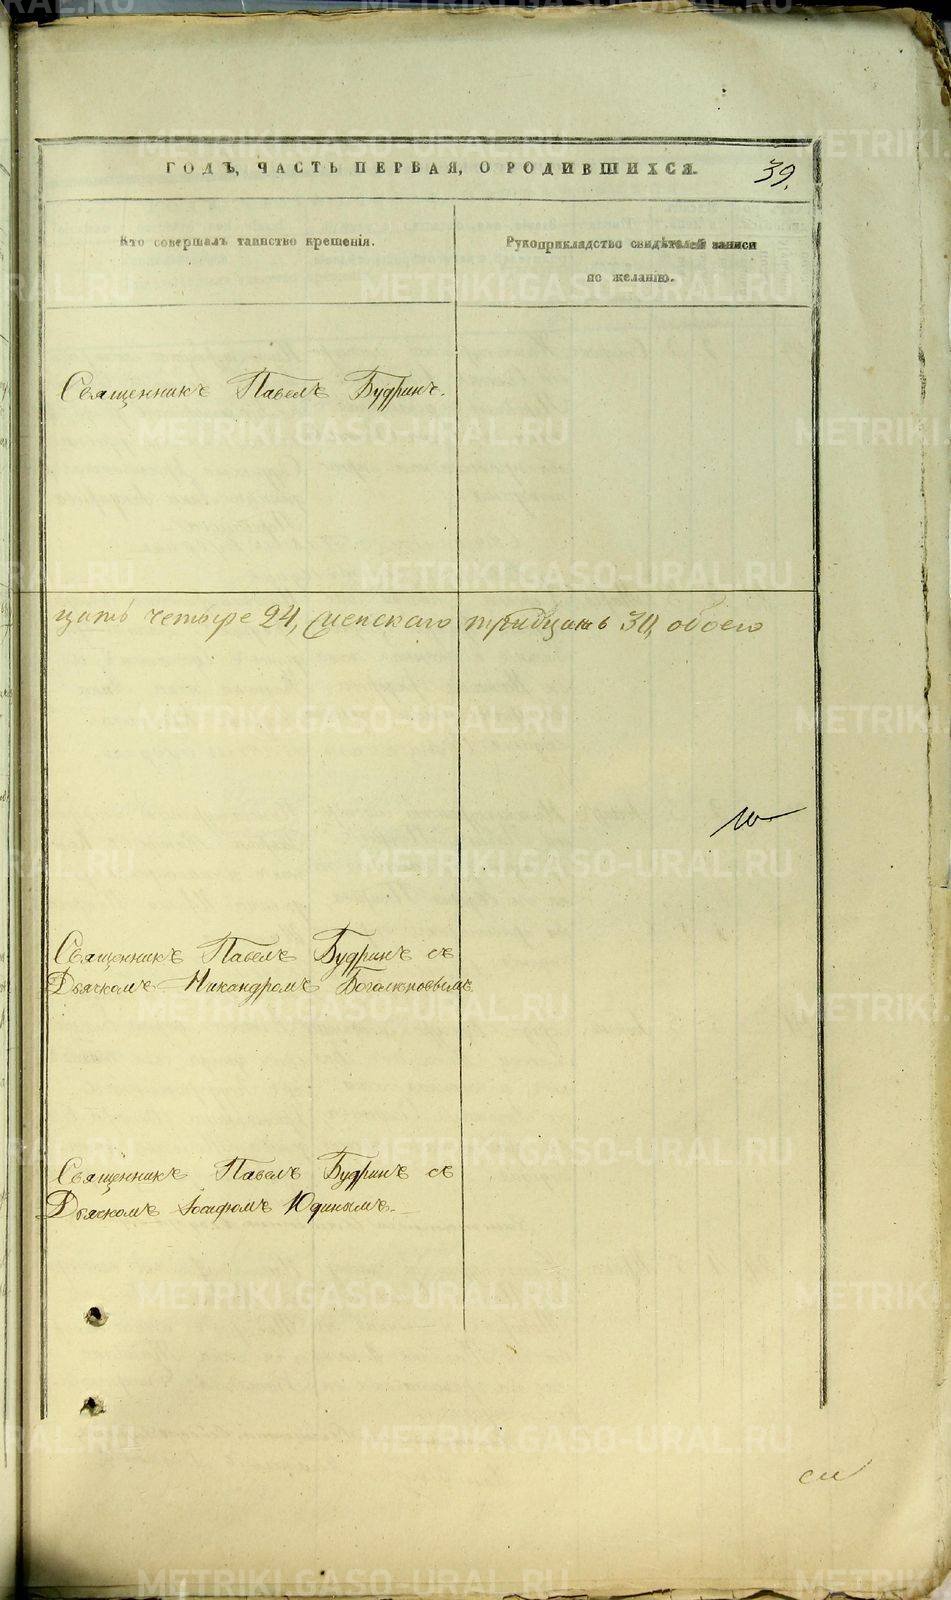 ГОДЪ, ЧАСТЬ ПЕРВАЯ, О РОДИВШИХСЯ.
39.
Кто совершалъ таинство крещенія.
Рукоприкладство свидѣтелей записи
по желанію.
Священникъ Павелъ Будринъ.
цать четыре 24, женскаго тридцать 30, обоего
Священникъ Павелъ Будринъ съ
Дьячкомъ Никандромъ Боголеповымъ
Священникъ Павелъ Будринъ съ
Дьячкомъ Іосифомъ Юдинымъ.
METRIKI.GASO-URAL.RU